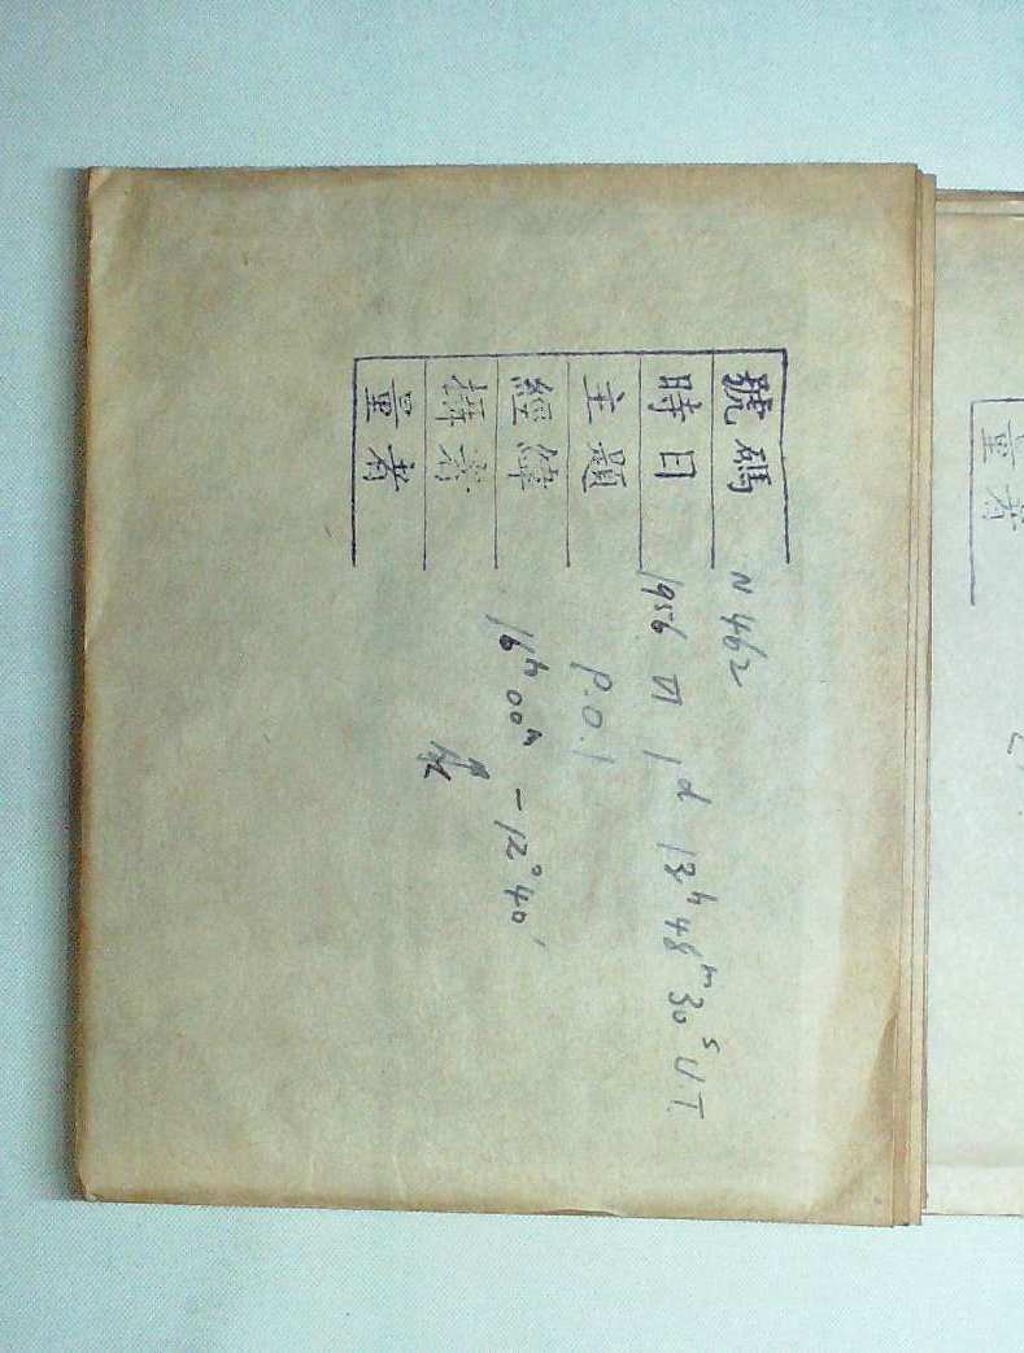 號碼 N 462
時日 1956 VI 1ᵈ 13ʰ 48ᵐ 30ˢ U.T.
主題 P.O.1
經緯 16ʰ 00ᵐ -12° 40′
攝者
量者
量者